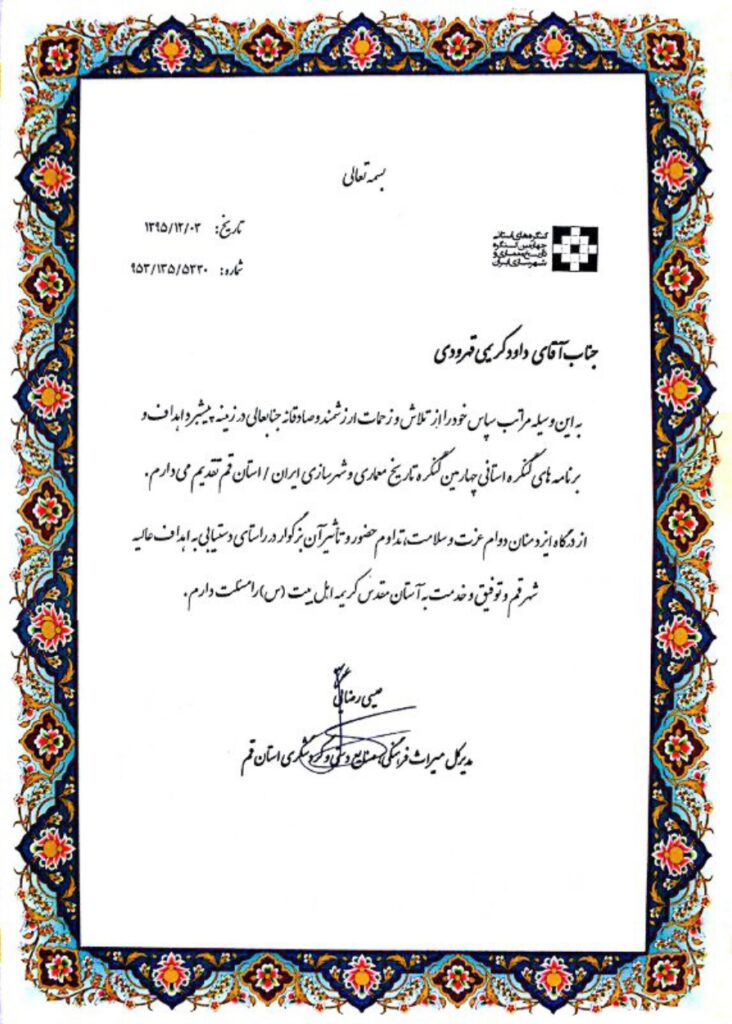 بسمه تعالی
تاریخ: ۱۳۹۵/۱۲/۰۳
شماره: ۹۵۳/۱۳۵/۵۲۳۰
کنگره‌های استانی
چهارمین کنگره
تاریخ معماری و
شهرسازی ایران
جناب آقای داود کریمی قهرودی
به این وسیله مراتب سپاس خود را از تلاش و زحمات ارزشمند و صادقانه جنابعالی در زمینه پیشبرد اهداف و
برنامه های کنگره استانی چهارمین کنگره تاریخ معماری و شهرسازی ایران / استان قم تقدیم می دارم.
از درگاه ایزد منان دوام عزت و سلامت، تداوم حضور و تأثیر آن بزرگوار در راستای دستیابی به اهداف عالیه
شهر قم و توفیق و خدمت به آستان مقدس کریمه اهل بیت (س) را مسئلت دارم.
عیسی رضائی
مدیرکل میراث فرهنگی، صنایع دستی و گردشگری استان قم